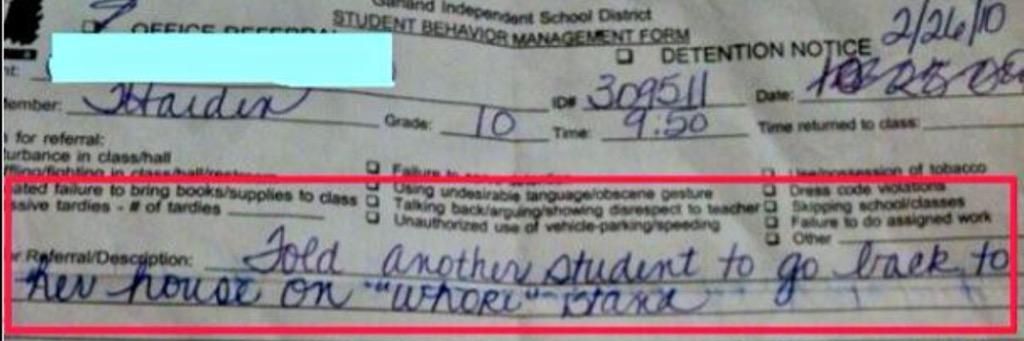 Garland Independent School District
STUDENT BEHAVIOR MANAGEMENT FORM
OFFICE REFERRAL
DETENTION NOTICE 2/26/10
ID# 309511 Date:
ember: THarden Grade: 10 Time: 9:50 Time returned to class:
for referral:
urbance in class/hall
ffling/fighting in class/hall/restroom Failure to Use/possession of tobacco
ated failure to bring books/supplies to class Using undesirable language/obscene gesture Dress code violations
ssive tardies - # of tardies Talking back/arguing/showing disrespect to teacher Skipping school/classes
Unauthorized use of vehicle-parking/speeding Failure to do assigned work
Other
r Referral/Description: Told another student to go back to
her house on "WHORE" Island